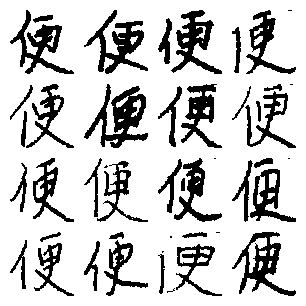 便便便便
便便便便
便便便便
便便便便